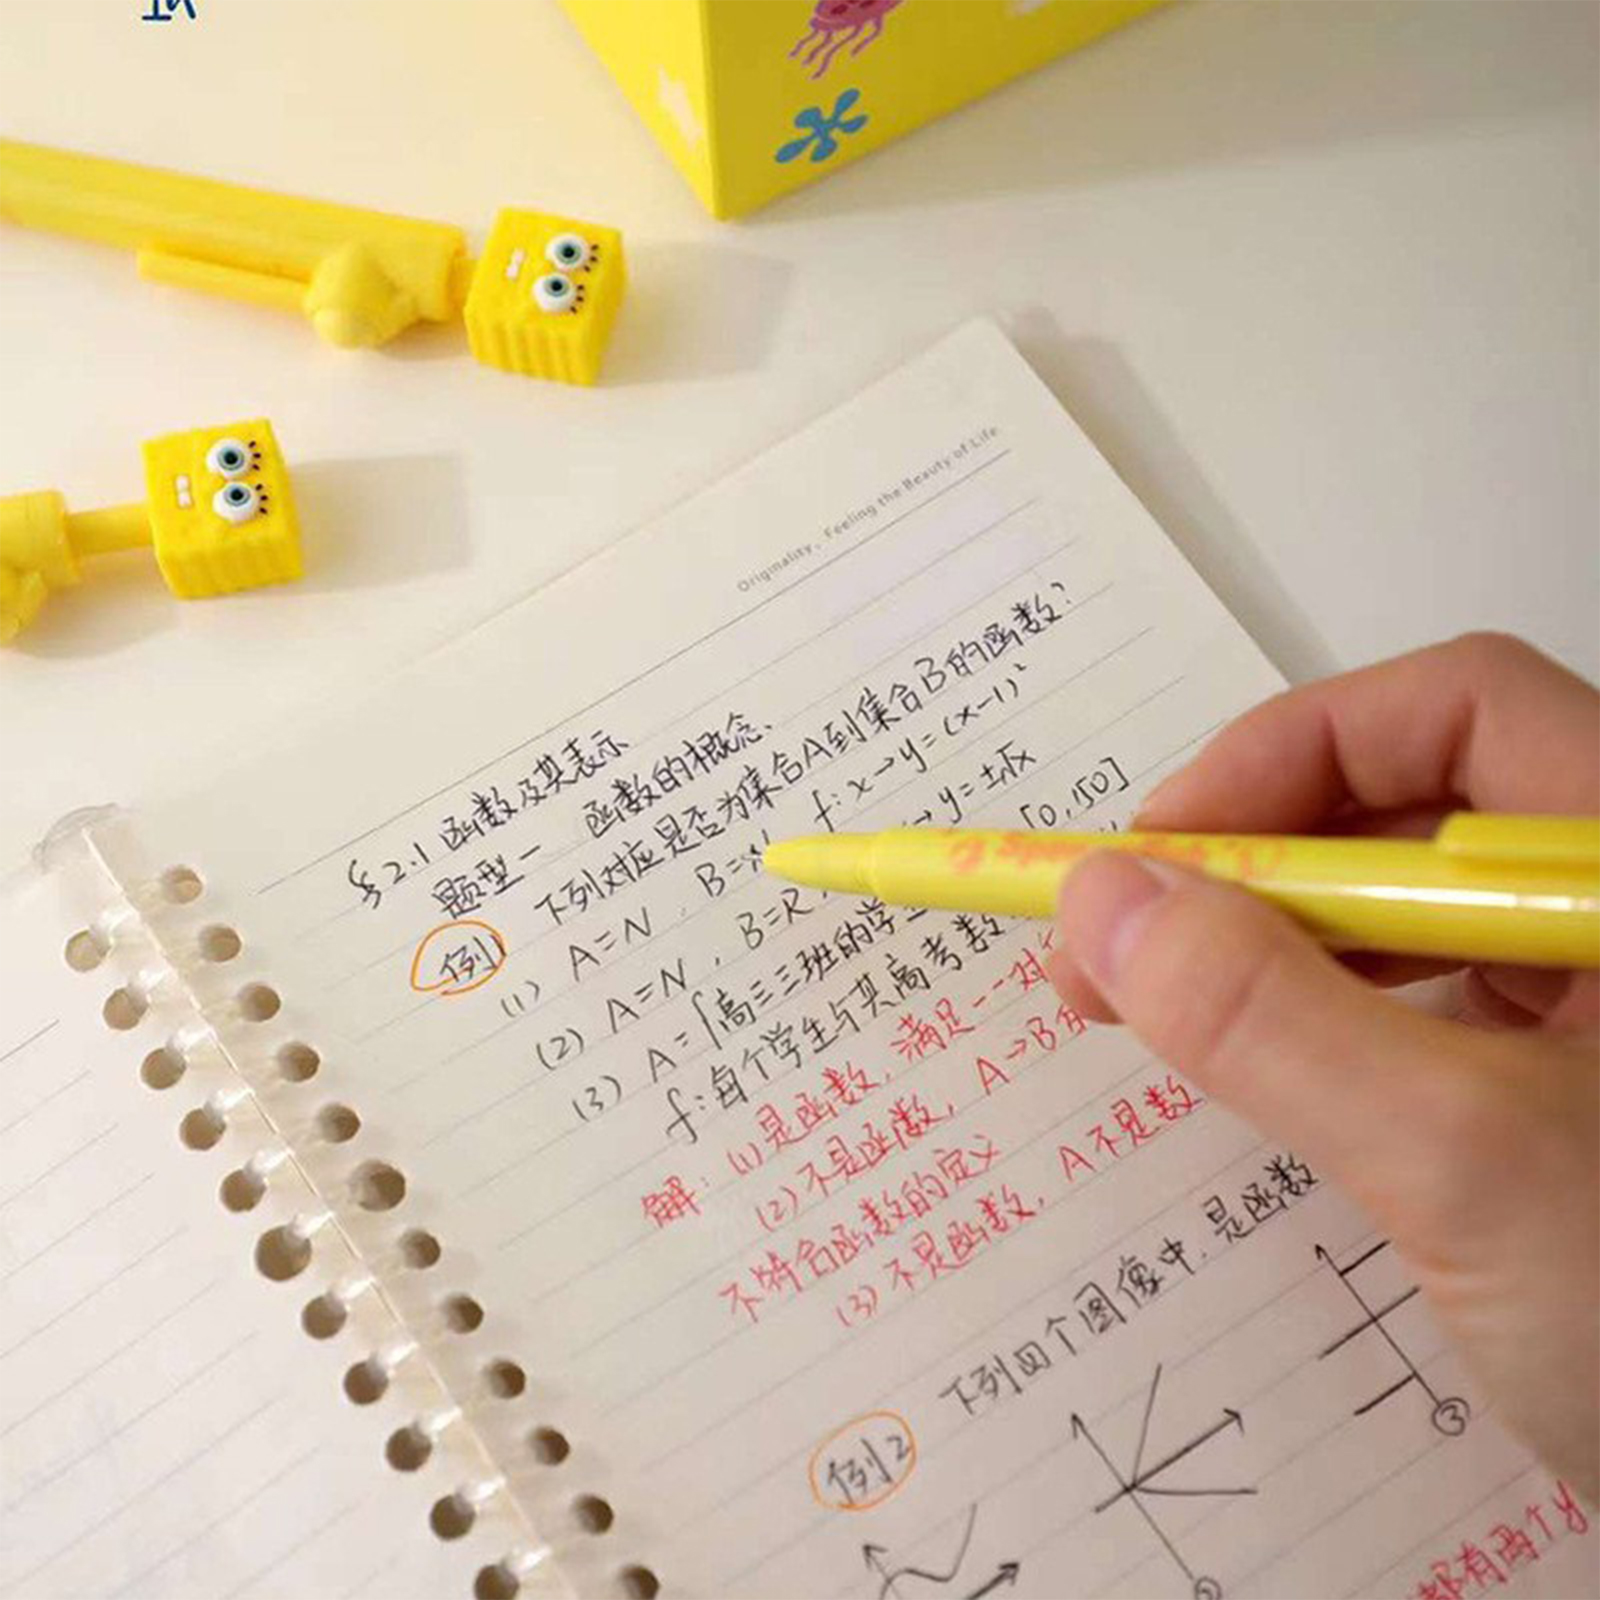 Originality、Feeling the Beauty of Life
§2.1 函数及其表示
题型一 函数的概念、
例1 下列对应是否为集合A到集合B的函数?
(1) A=N , B= f:x→y=(x-1)²
(2) A=N , B=R, →y=±√x
(3) A={高三三班的学生 [0,150]
f:每个学生与其高考数
解: (1)是函数,满足一一对
(2)不是函数, A→B有
不符合函数的定义
(3)不是函数, A不是数
例2 下列四个图像中,是函数
③
都有两个y